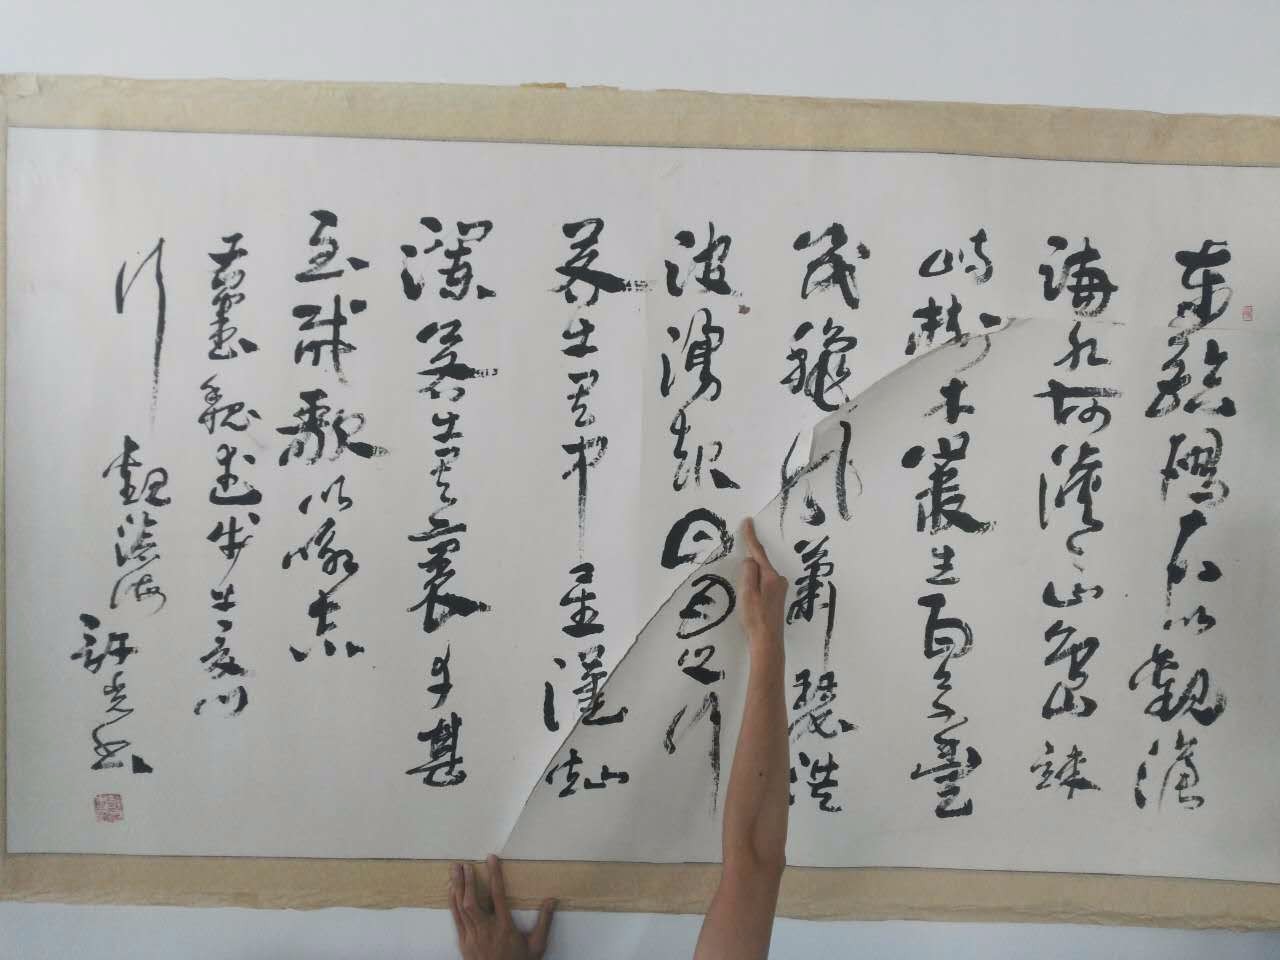 東臨碣石以觀滄
海水何澹澹山島竦
峙樹木叢生百草豐
茂龝風蕭瑟洪
波湧起日月之行
若出其中星漢灿
瀾若出其裏幸甚
至哉歌以咏志
魏武步出夏门
行
觀滄海
許光书